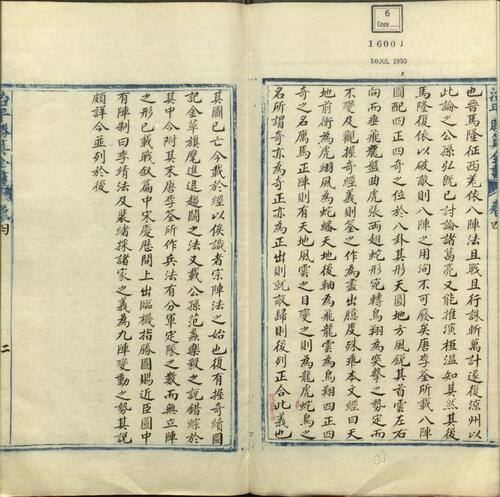 6
Copy
1600 J
10 JUL 1950
也晉馬隆征西羌依八陣法且戰且行誅斬萬計遂復涼州以
此論之公孫弘既已討論諸葛亮又能推演桓溫知其然其後
馬隆復依以破敵則八陣之用洵不可廢矣唐李筌所載八陣
圖配四正四奇之位於八卦其形天圓地方風銳其首雲左右
向而垂飛龍盤曲虎張兩翅蛇形宛轉鳥翔為突擊之勢定而
不變及觀握奇經義則筌之作為畫出臆度殊乖本文經曰天
地前衝為虎翅風為蛇蟠天地後軸為飛龍雲為鳥翔四正四
奇之名厲馬正陣則有天地風雲之目變之則為龍虎蛇鳥之
名所謂奇亦為奇正亦為正出則就敵歸則後列正合此義也
其圖已亡今載於經以俟識者宗陣法之始也復有握奇續圖
記金革旗麾進退趨鬬之法又載公孫范蠡樂毅之說錯綜於
其中今附其末唐李筌所作兵法有分軍定隊之數而無立陣
之形已載戰敘篇中宋慶曆間上出臨機指勝圖賜近臣圖中
有陣制曰李靖法及裴緒採諸家之義為九陣變動之勢其說
頗詳今並列於後
四
二